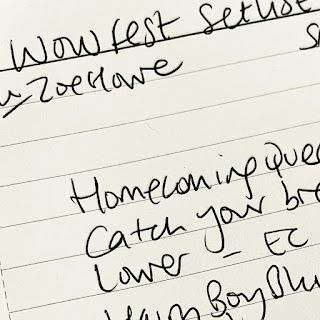 Wowfest Setlist
w/ Zoe Howe
Homecoming Quee
Catch your bre
Lower - EC
Boy Blu